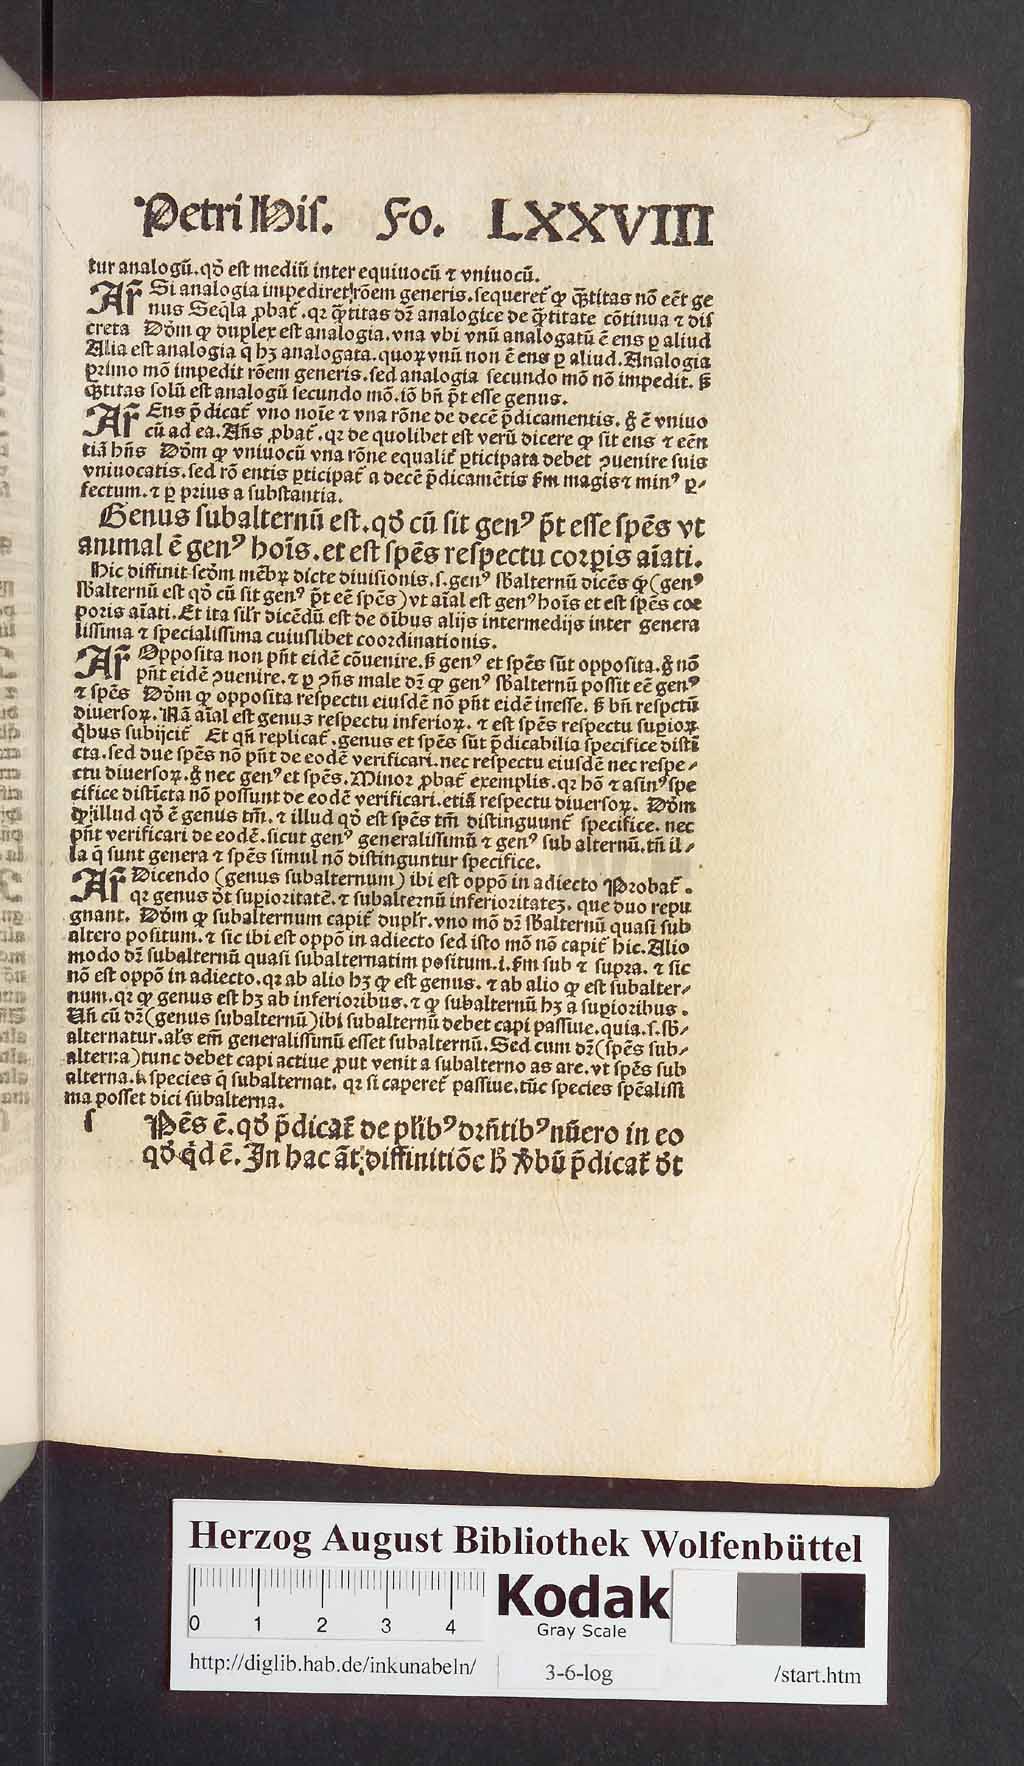 Petri His. Fo. LXXVIII
tur analogū. qđ est mediū inter equiuocū ⁊ vniuocū.
Arꝰ Si analogia impediret rōem generis. sequeret̉ ꝙ q̄titas nō eēt ge
nus Seq̄la ꝓbat̉. qꝛ q̄titas dꝛ̄ analogice de q̄titate cōtinua ⁊ dis
creta Dōm ꝙ duplex est analogia. vna vbi vnū analogatū ē ens ꝑ aliud
Alia est analogia q̄ hꝫ analogata. quoꝝ vnū non ē ens ꝑ aliud. Analogia
primo mō impedit rōem generis. sed analogia secundo mō nō impedit. sꝫ
q̄titas solū est analogū secundo mō. iō bn̄ p̄t esse genus.
Arꝰ Ens p̄dicat̉ vno noīe ⁊ vna rōne de decē p̄dicamentis. g̊ ē vniuo
cū ad ea. Añs ꝓbat̉. qꝛ de quolibet est verū dicere ꝙ sit ens ⁊ eēn
tiā hn̄s Dōm ꝙ vniuocū vna rōne equalit̉ ꝑticipata debet ꝯuenire suis
vniuocatis. sed rō entis ꝑticipat̉ a decē p̄dicamētis ẜm magis ⁊ minꝰ ꝑ-
fectum. ⁊ ꝑ prius a substantia.
Genus subalternū est. qđ cū sit genꝰ p̄t esse spēs vt
animal ē genꝰ hoīs. et est spēs respectu corꝑis aīati.
Hic diffinit scđm mēbꝝ dicte diuisionis. s. genꝰ sƀalternū dicēs ꝙ (genꝰ
sƀalternū est qđ cū sit genꝰ p̄t eē spēs) vt aīal est genꝰ hoīs et est spēs coꝛ
poris aīati. Et ita silꝛ dicēdū est de oībus alijs intermedijs inter genera
lissima ⁊ specialissima cuiuslibet coordinationis.
Arꝰ Opposita non pn̄t eidē cōuenire. sꝫ genꝰ et spēs sūt opposita. g̊ nō
pn̄t eidē ꝯuenire. ⁊ ꝑ ꝯn̄s male dꝛ̄ ꝙ genꝰ sƀalternū possit eē genꝰ
⁊ spēs Dōm ꝙ opposita respectu eiusdē nō pn̄t eidē inesse. sꝫ bn̄ respctū
diuersoꝝ. Nā aīal est genus respectu inferioꝝ. ⁊ est spēs respectu suꝑioꝝ
q̇bus subijcit̉ Et qn̄ replicat̉. genus et spēs sūt p̄dicabilia specifice distī
cta. sed due spēs nō pn̄t de eodē verificari. nec respectu eiusdē nec respe-
ctu diuersoꝝ. g̊ nec genꝰ et spēs. Minor ꝓbat̉ exemplis. qꝛ hō ⁊ asinꝰ spe
cifice distīcta nō possunt de eodē verificari. etiā respectu diuersoꝝ. Dōm
ꝙ illud qđ ē genus tm̄. ⁊ illud qđ est spēs tm̄ distinguunt̉ specifice. nec
pn̄t verificari de eodē. sicut genꝰ generalissimū ⁊ genꝰ sub alternū. tn̄ il-
la q̄ sunt genera ⁊ spēs simul nō distinguntur specifice.
Arꝰ Dicendo (genus subalternum) ibi est oppō in adiecto Probat̉.
qꝛ genus dꝛ̄t suꝑioritatē. ⁊ subalternū inferioritateꝫ. que duo repu
gnant. Dōm ꝙ subalternum capit̉ duplꝛ. vno mō dꝛ̄ sƀalternū quasi sub
altero positum. ⁊ sic ibi est oppō in adiecto sed isto mō nō capit̉ hic. Alio
modo dꝛ̄ subalternū quasi subalternatim positum. i. ẜm sub ⁊ supra. ⁊ sic
nō est oppō in adiecto. qꝛ ab alio hꝫ ꝙ est genus. ⁊ ab alio ꝙ est subalter-
num. qꝛ ꝙ genus est hꝫ ab inferioribus. ⁊ ꝙ subalternū hꝫ a suꝑioribus.
Uñ cū dꝛ̄ (genus subalternū) ibi subalternū debet capi passiue. quia. s. sƀ-
alternatur. al's em̄ generalissimū esset subalternū. Sed cum dꝛ̄ (spēs sub-
alterna) tunc debet capi actiue ꝓut venit a subalterno as are. vt spēs sub
alterna. i. species q̄ subalternat. qꝛ si caperet̉ passiue. tūc species spēalissi
ma posset dici subalterna.
s Pēs ē. qđ p̄dicat̉ de pl'ibꝰ drn̄tibꝰ nūero in eo
qđ q̇d ē. In hac āt diffinitiōe hꝫ v̓bū p̄dicat̉ dꝛ̄t
Herzog August Bibliothek Wolfenbüttel
0 1 2 3 4
Kodak
Gray Scale
http://diglib.hab.de/inkunabeln/ 3-6-log /start.htm